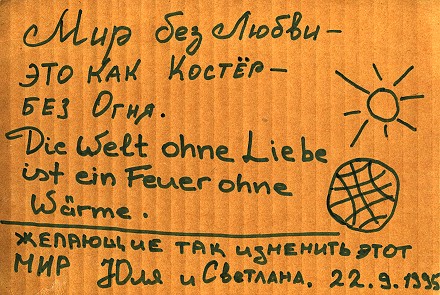 Мир без Любви –
это как Костёр –
без Огня.
Die Welt ohne Liebe
ist ein Feuer ohne
Wärme.
желающие так изменить этот
мир Юля и Светлана. 22.9.1995